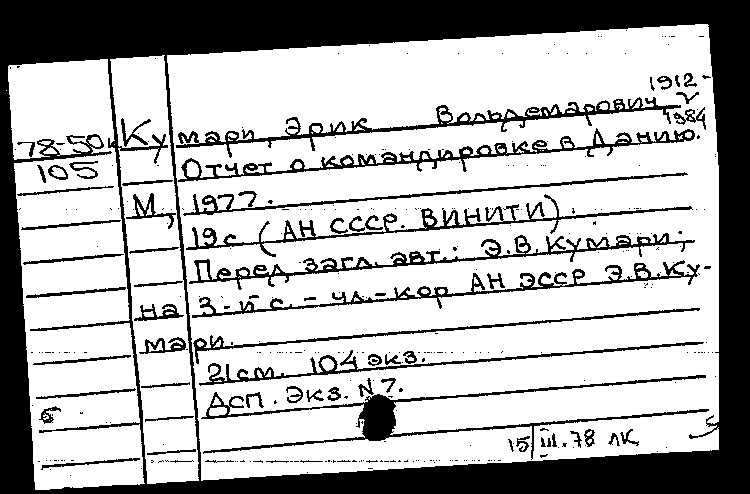 1912-
78-50к Кумари, Эрик Вольдемарович 1984
105 Отчет о командировке в Данию.
М, 1977.
19с (АН СССР. ВИНИТИ).
Перед загл. авт.: Э.В.Кумари;
на 3-й с. - чл.-кор АН ЭССР Э.В.Ку-
мари.
21см. 104 экз.
ДСП. Экз. N7.
б
15/III.78 ЛК